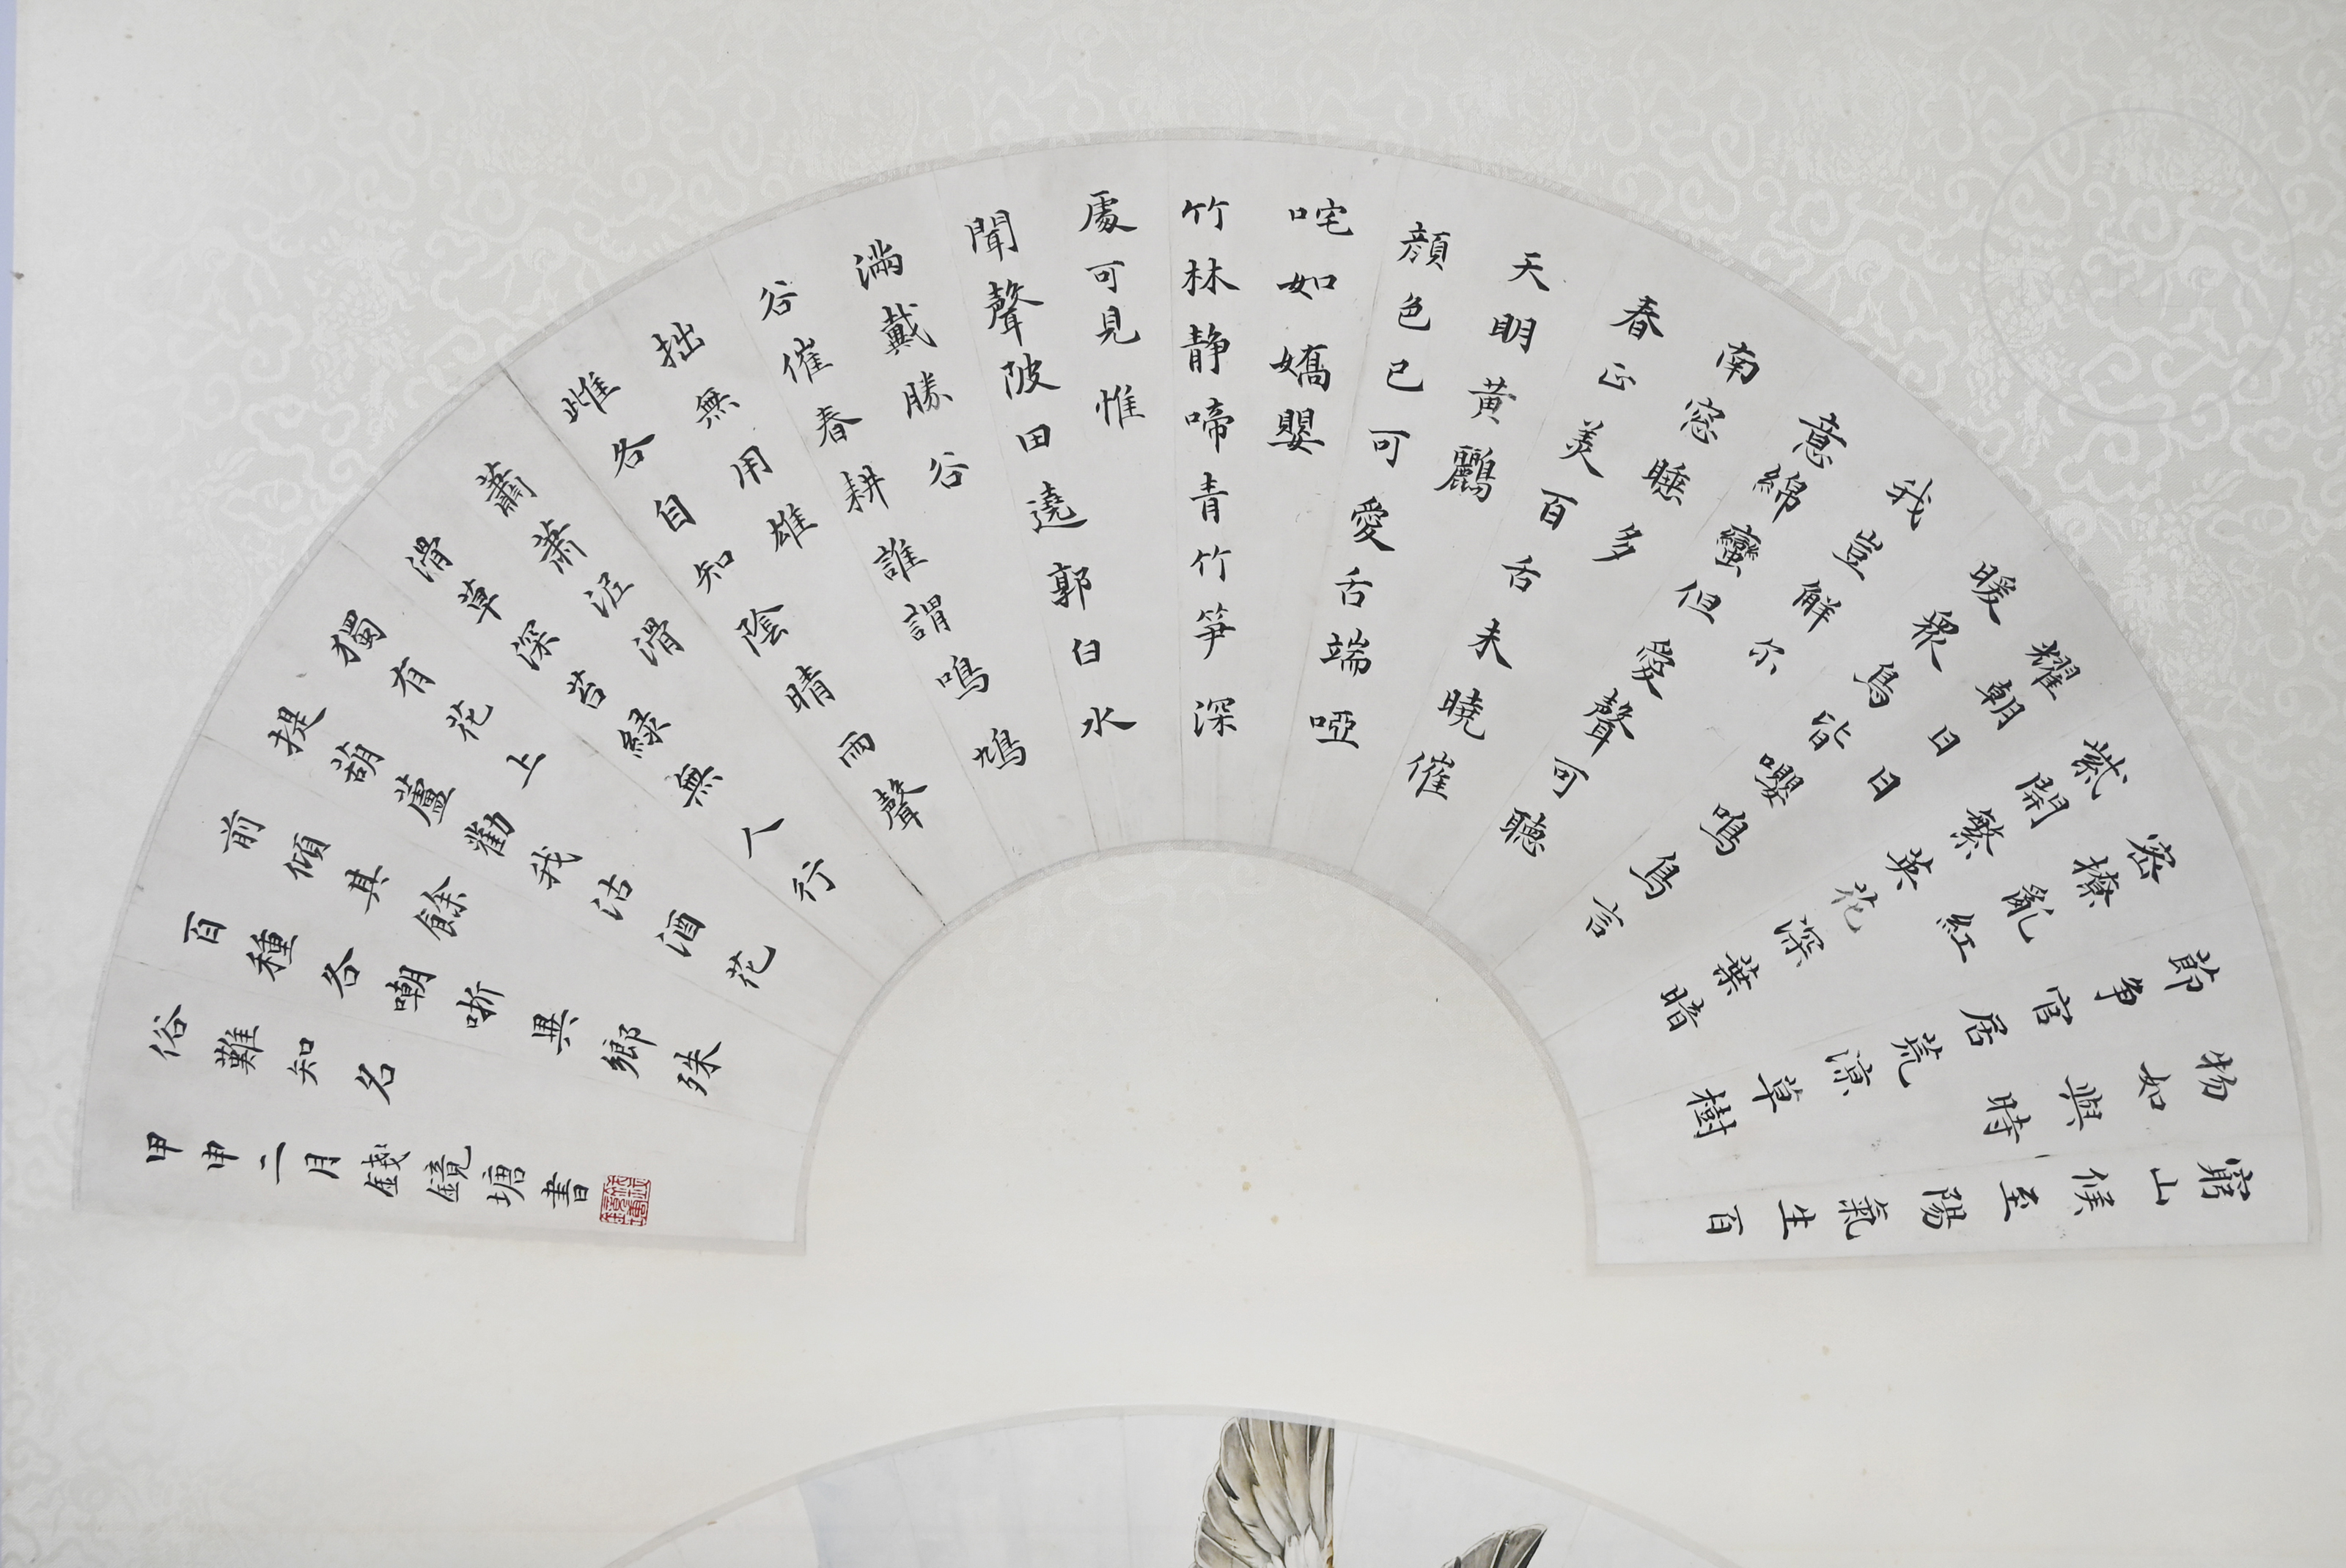 窮山候至陽氣生百
物如與時
節爭官居荒涼草樹
密撩亂紅
紫開繁英花深葉暗
耀朝日日
暖衆鳥皆嚶鳴鳥言
我豈解尔
意綿蠻但愛聲可聽
南窓睡多
春正美百舌未曉催
天明黃鸝
顏色已可愛舌端啞
咤如嬌嬰
竹林静啼青竹笋深
處可見惟
聞聲陂田遶郭白水
滿戴勝谷
谷催春耕誰謂鳴鳩
拙無用雄
雌各自知陰晴雨聲
蕭蕭泥滑
滑草深苔綠無人行
獨有花上
提葫蘆勸我沽酒花
前傾其餘
百種各嘲哳異鄉殊
俗難知名
甲申二月錢鏡塘書